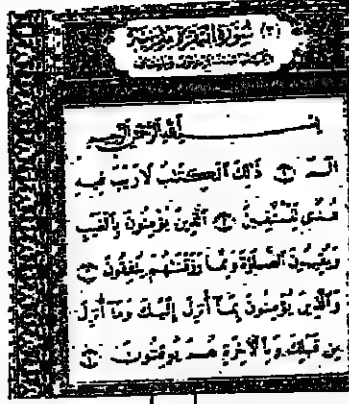 (٢) سُورَةُ الْبَقَرَةِ مَدَنِيَّة
بِسْمِ اللَّهِ الرَّحْمَٰنِ الرَّحِيمِ
الٓمٓ ۝١ ذَٰلِكَ ٱلْكِتَٰبُ لَا رَيْبَ فِيهِ
هُدًى لِّلْمُتَّقِينَ ۝٢ ٱلَّذِينَ يُؤْمِنُونَ بِٱلْغَيْبِ
وَيُقِيمُونَ ٱلصَّلَوٰةَ وَمِمَّا رَزَقْنَٰهُمْ يُنفِقُونَ ۝٣
وَٱلَّذِينَ يُؤْمِنُونَ بِمَآ أُنزِلَ إِلَيْكَ وَمَآ أُنزِلَ
مِن قَبْلِكَ وَبِٱلْءَاخِرَةِ هُمْ يُوقِنُونَ ۝٤